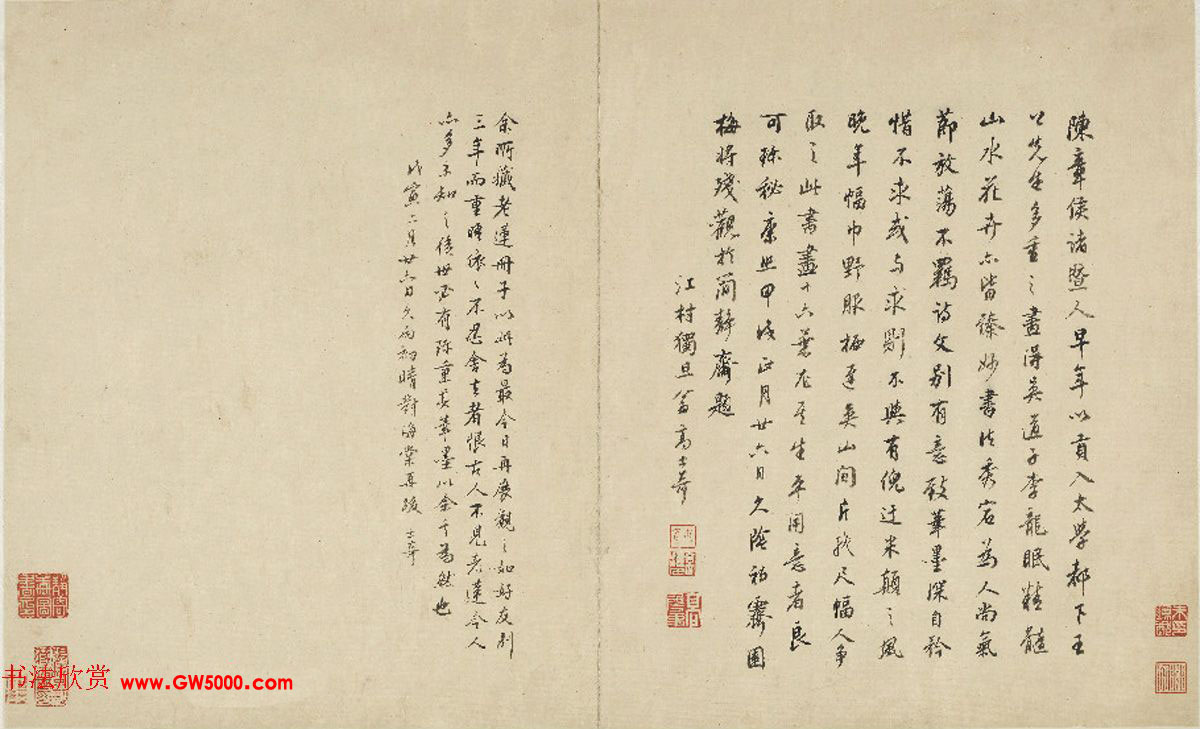 陳章侯諸暨人早年以貢入太學都下王
公先生多重之畫得吳道子李龍眠精髓
山水花卉亦皆臻妙書法秀宕為人尚氣
節放蕩不羈詩文別有意致筆墨深自矜
惜不求或与求剧不與有倪迂米顛之風
晚年幅巾野服栖遲吳山間片紙尺幅人争
取之此書畫十六葉尤其生平用意者良
可珎秘康熙甲戌正月廿六日久陰初霽園
梅將殘觀於簡静齋題
江村獨旦翁高士奇
余所藏老蓮冊子以此為最今日再展觀之如好友别
三年而重晤依依不忍舍去者恨古人不見老蓮今人
亦多不知之後世必有珎重其筆墨以余言為然也
戊寅二月廿六日久雨初晴對海棠再跋 士奇
书法欣赏 www.GW5000.com